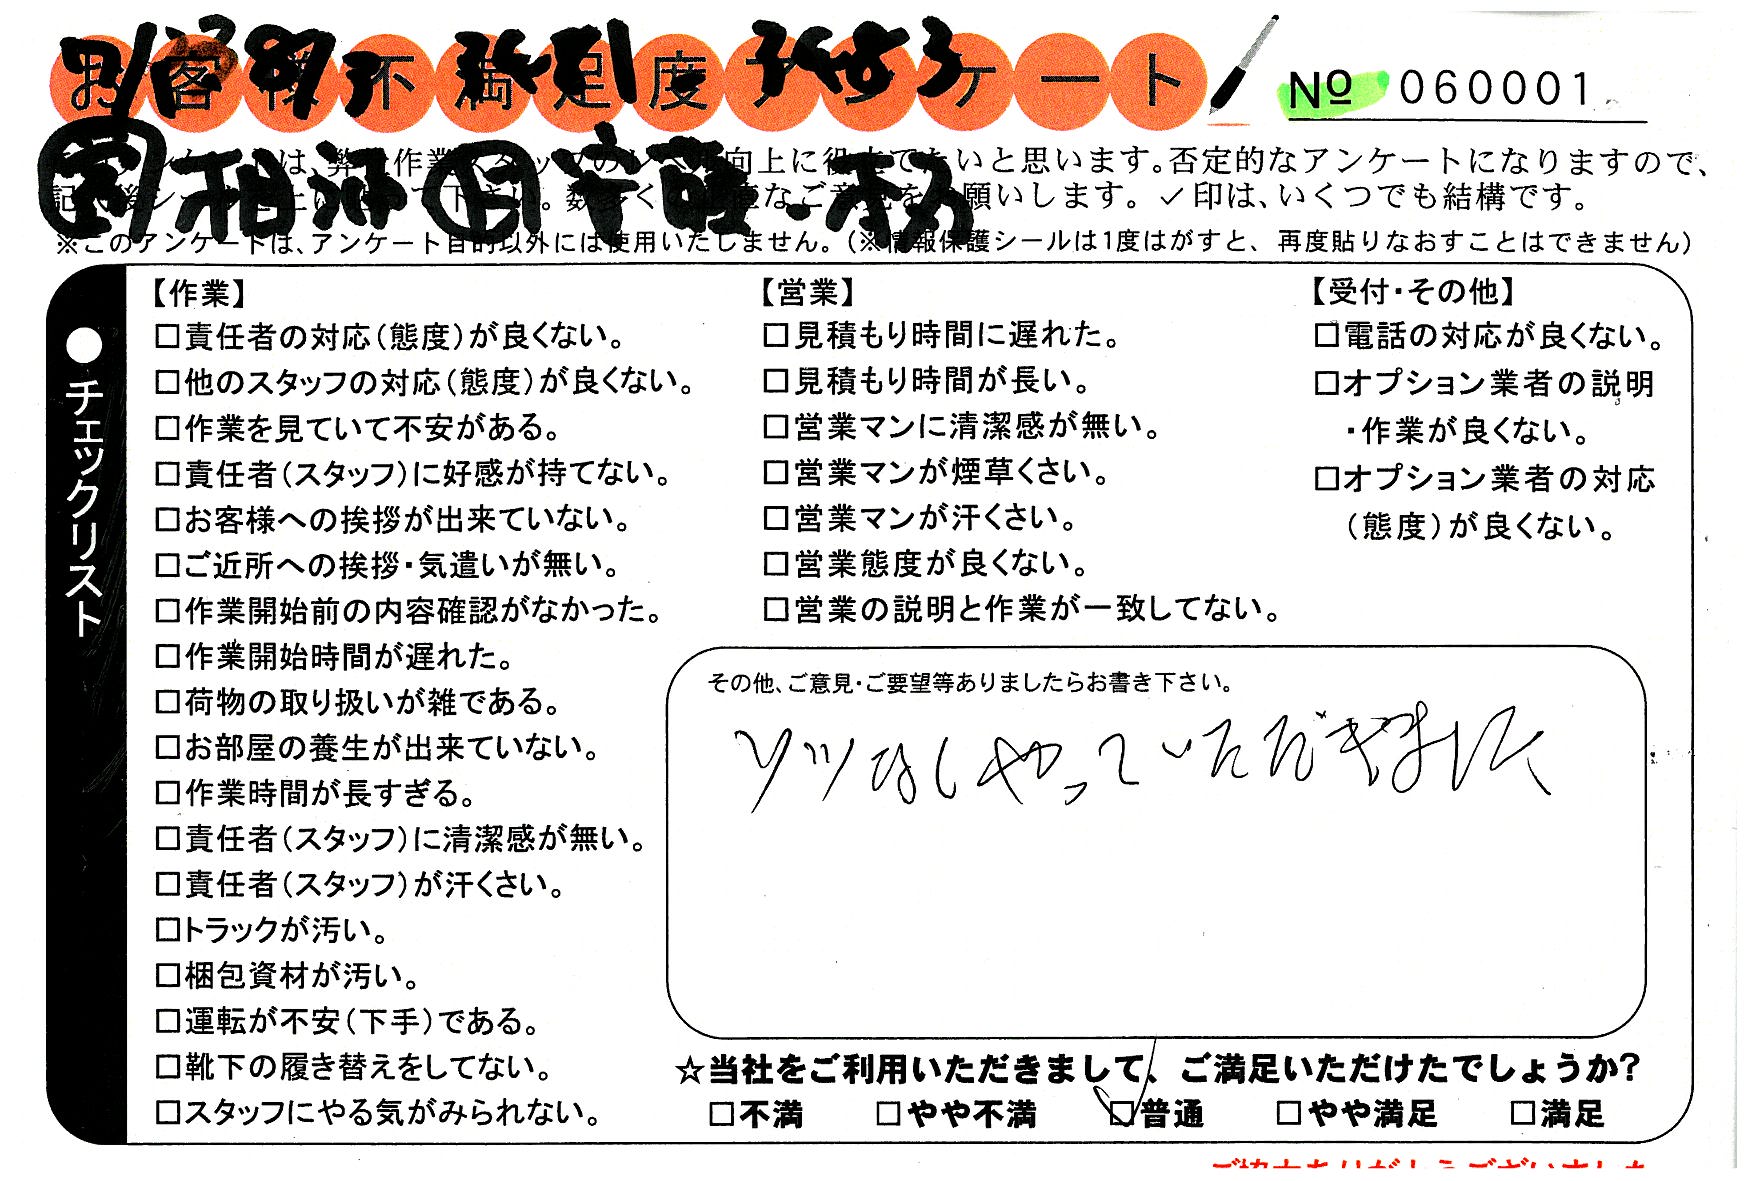 お客様不満足度アンケート
№ 060001
は、弊社作業スタッフのレベル向上に役立てたいと思います。否定的なアンケートになりますので、
願いします。✓印は、いくつでも結構です。
※このアンケートは、アンケート目的以外には使用いたしません。（※情報保護シールは1度はがすと、再度貼りなおすことはできません）
●チェックリスト
【作業】
□責任者の対応（態度）が良くない。
□他のスタッフの対応（態度）が良くない。
□作業を見ていて不安がある。
□責任者（スタッフ）に好感が持てない。
□お客様への挨拶が出来ていない。
□ご近所への挨拶・気遣いが無い。
□作業開始前の内容確認がなかった。
□作業開始時間が遅れた。
□荷物の取り扱いが雑である。
□お部屋の養生が出来ていない。
□作業時間が長すぎる。
□責任者（スタッフ）に清潔感が無い。
□責任者（スタッフ）が汗くさい。
□トラックが汚い。
□梱包資材が汚い。
□運転が不安（下手）である。
□靴下の履き替えをしてない。
□スタッフにやる気がみられない。
【営業】
□見積もり時間に遅れた。
□見積もり時間が長い。
□営業マンに清潔感が無い。
□営業マンが煙草くさい。
□営業マンが汗くさい。
□営業態度が良くない。
□営業の説明と作業が一致してない。
【受付・その他】
□電話の対応が良くない。
□オプション業者の説明
・作業が良くない。
□オプション業者の対応
（態度）が良くない。
その他、ご意見・ご要望等ありましたらお書き下さい。
ソツなしやっていただきました
☆当社をご利用いただきまして、ご満足いただけたでしょうか?
□不満 □やや不満 ☑普通 □やや満足 □満足
ご協力ありがとうございました